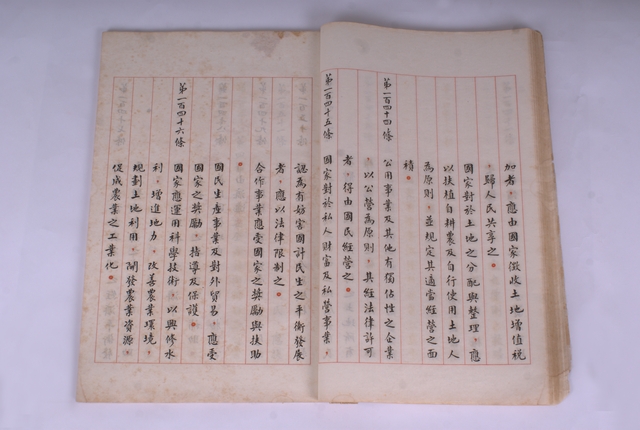 加者，應由國家徵收土地增值稅
，歸人民共享之。
國家對於土地之分配與整理，應
以扶植自耕農及自行使用土地人
為原則，並規定其適當經營之面
積。
第一百四十四條　公用事業及其他有獨佔性之企業
，以公營為原則，其經法律許可
者，得由國民經營之。
第一百四十五條　國家對於私人財富及私營事業，
認為有妨害國計民生之平衡發展
者，應以法律限制之。
合作事業應受國家之獎勵與扶助
。
國民生產事業及對外貿易，應受
國家之獎勵，指導及保護。
第一百四十六條　國家應運用科學技術，以興修水
利，增進地力，改善農業環境，
規劃土地利用，開發農業資源，
促成農業之工業化。